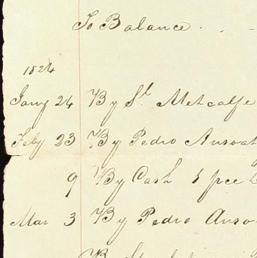 To Balance
1824
Jany 24 By St. Metcalfe
Feby 23 By Pedro
9 By Cash 1 pce
Mar 3 By Pedro